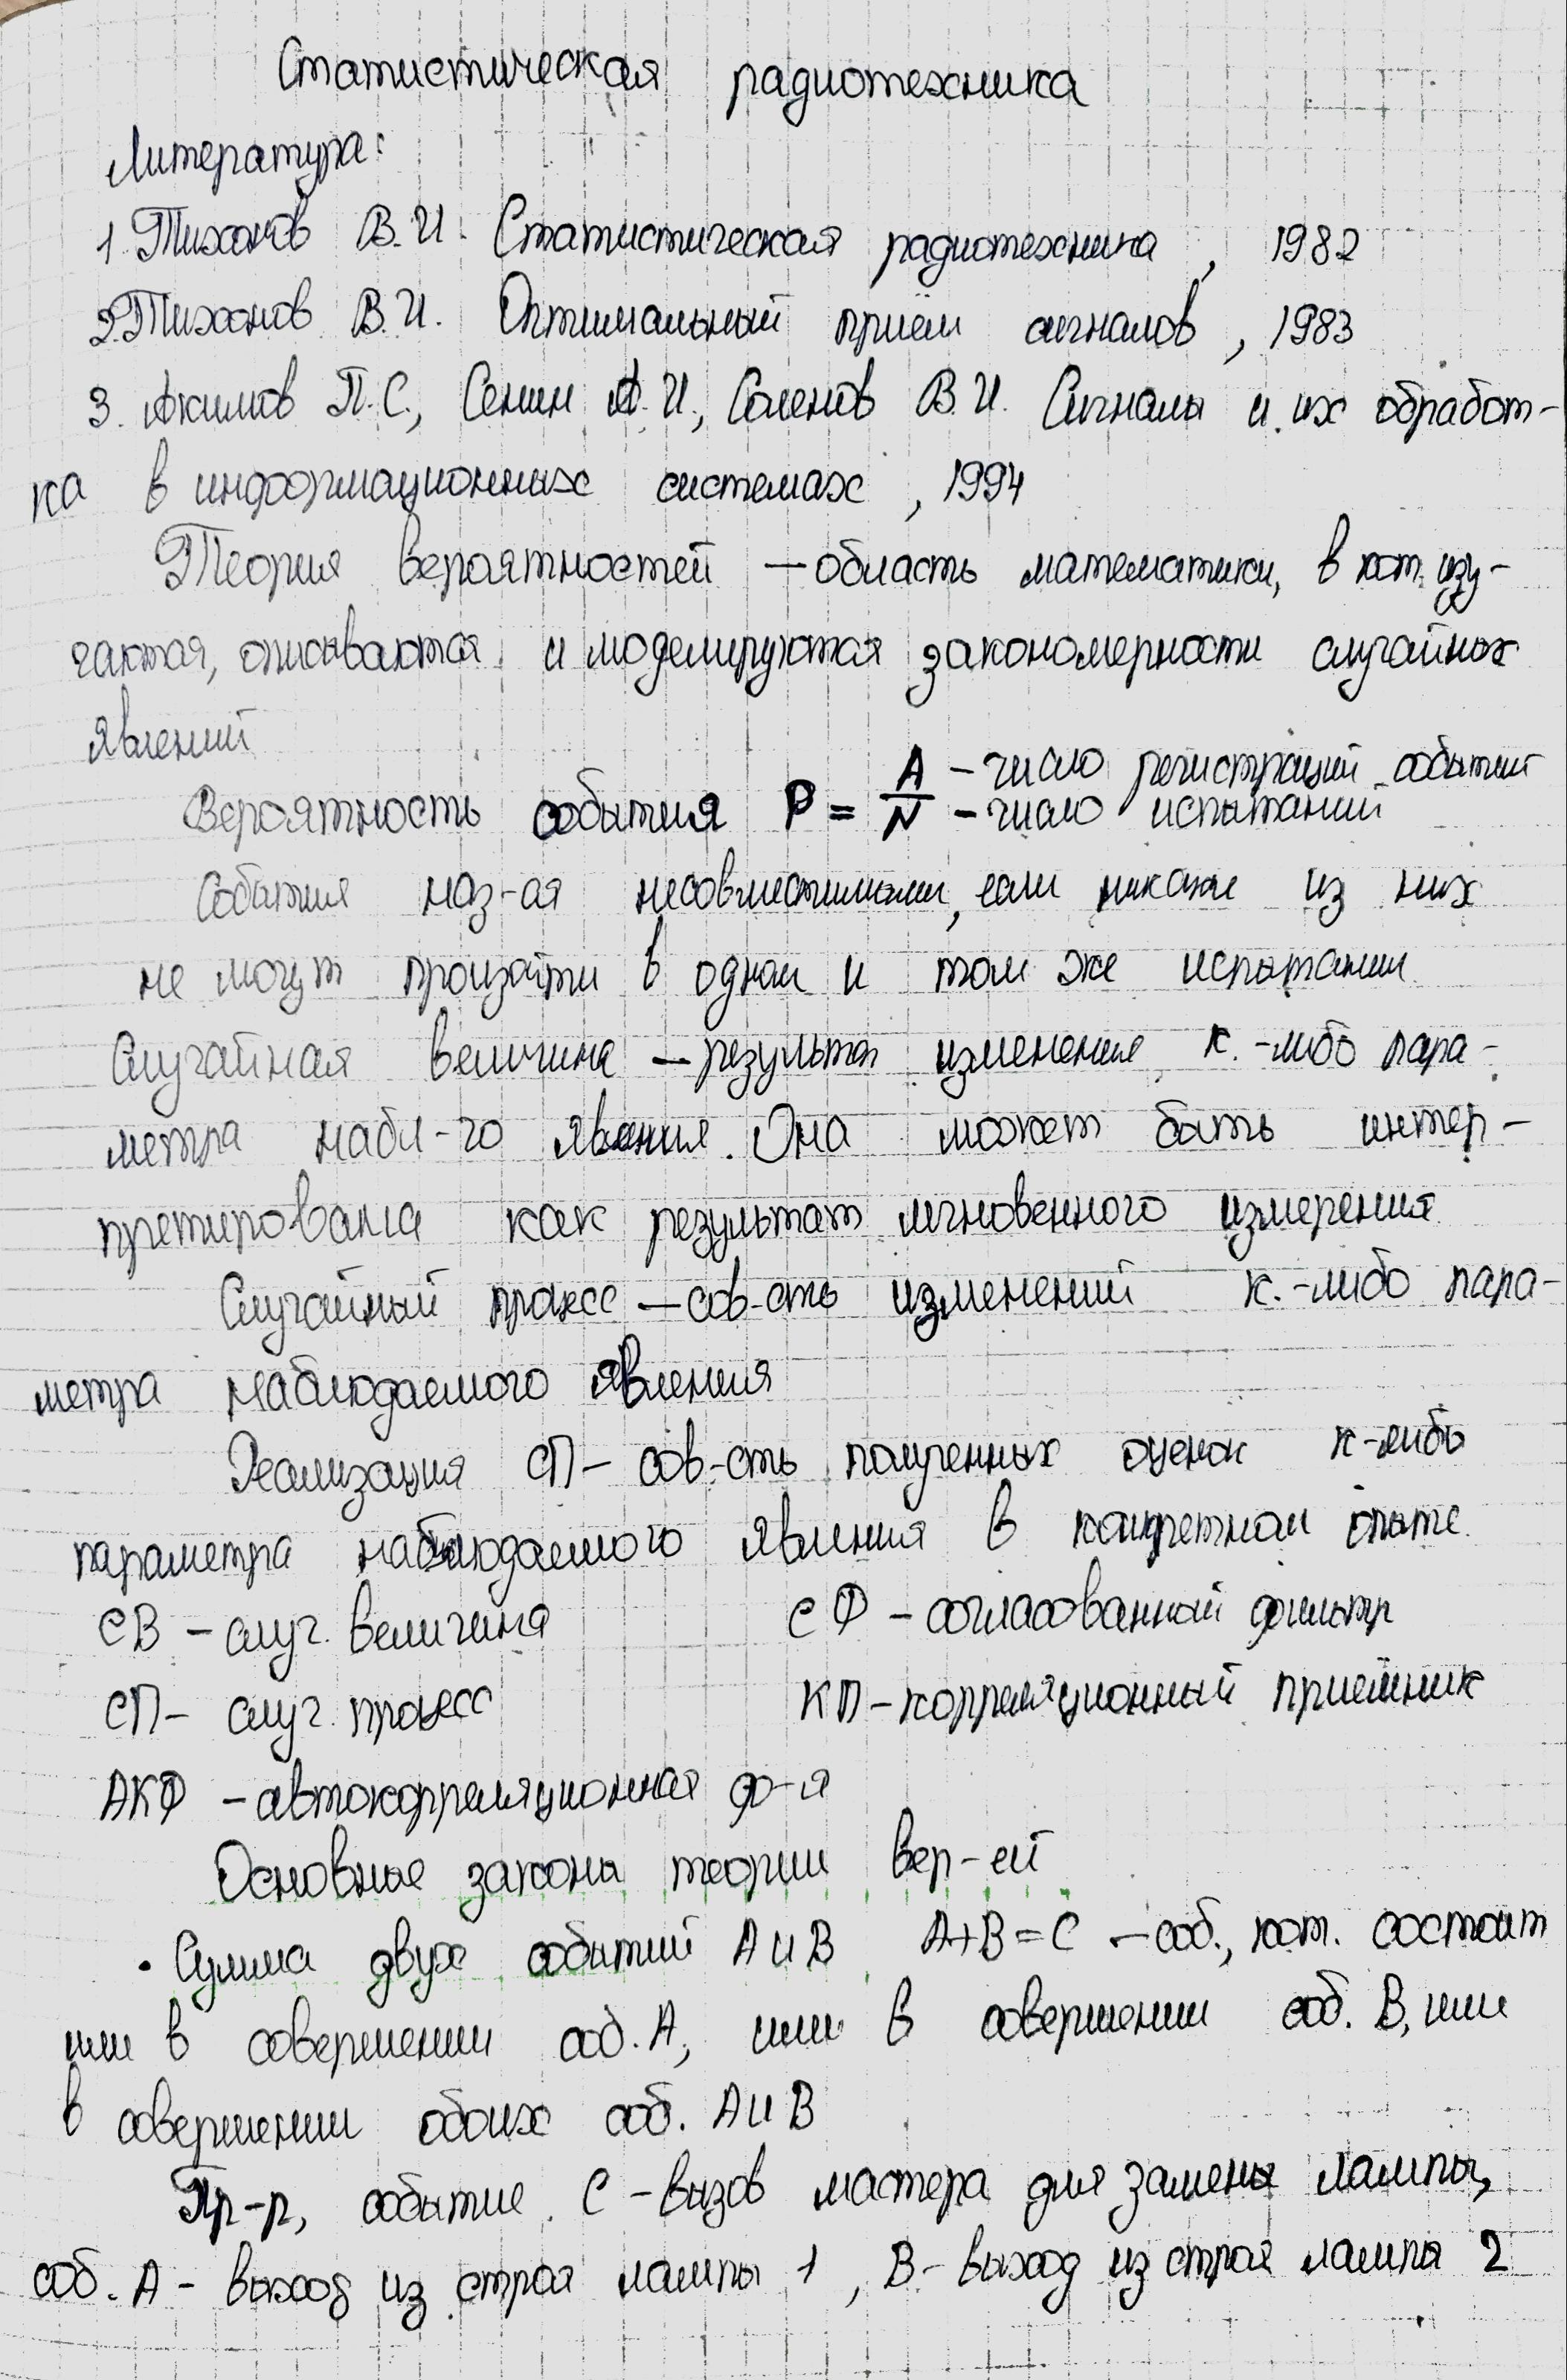 Статистическая радиотехника
Литература:
1. Тихонов В.И. Статистическая радиотехника, 1982
2. Тихонов В.И. Оптимальный приём сигналов, 1983
3. Акимов П.С., Сенин А.И., Соленов В.И. Сигналы и их обработ-
ка в информационных системах, 1994
Теория вероятностей — область математики, в кот. изу-
чаются, описываются и моделируются закономерности случайных
явлений
Вероятность события P = A/N A – число регистраций событий
N – число испытаний
События наз-ся несовместимыми, если никакие из них
не могут произойти в одном и том же испытании
Случайная величина — результат изменения к.-либо пара-
метра набл-го явления. Она может быть интер-
претирована как результат мгновенного измерения
Случайный процесс — сов-сть изменений к.-либо пара-
метра наблюдаемого явления
Реализация СП – сов-сть полученных оценок к-либо
параметра наблюдаемого явления в конкретном опыте.
СВ – случ. величина СФ – согласованный фильтр
СП – случ. процесс КП – корреляционный приёмник
АКФ – автокорреляционная ф-я
Основные законы теории вер-ей
• Сумма двух событий А и В A+B=C – соб., кот. состоит
или в совершении соб. А, или в совершении соб. В, или
в совершении обоих соб. А и В
Пр-р, событие С – вызов мастера для замены лампы,
соб. А – выход из строя лампы 1, В – выход из строя лампы 2